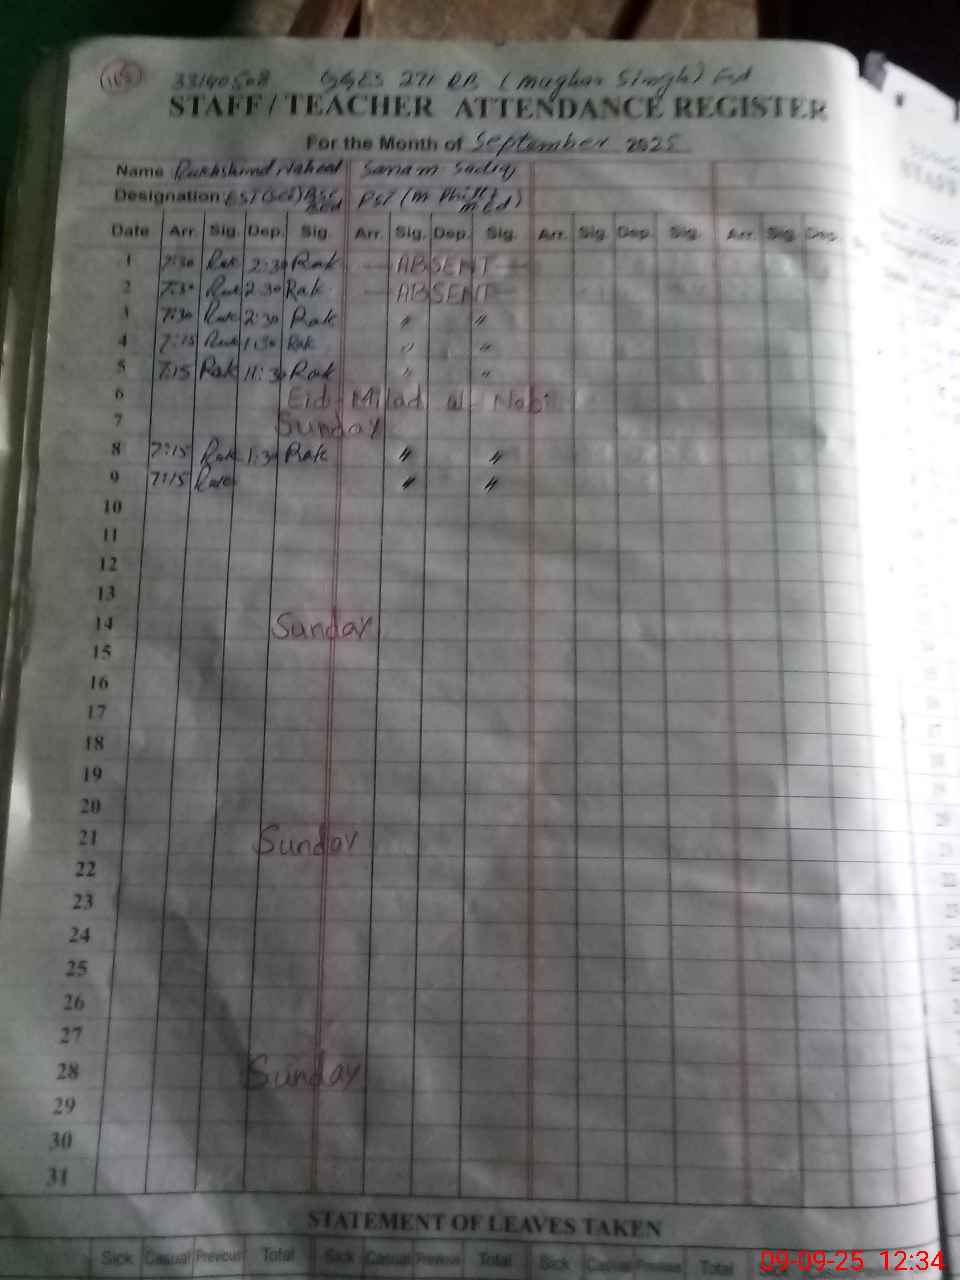 33140508 GGES 271 RB (Mughar Singh) Fd
STAFF / TEACHER ATTENDANCE REGISTER
For the Month of September 2025
Name Rukhshind Naheed Sanam Sadiq
Designation EST (Sci) BSc BEd PST (M Phill, M Ed)
Date Arr. Sig. Dep. Sig. Arr. Sig. Dep. Sig. Arr. Sig. Dep. Sig. Arr. Sig. Dep.
1 7:30 Rak 2:30 Rak — ABSENT —
2 7:30 Rak 2:30 Rak — ABSENT —
3 7:30 Rak 2:30 Rak 〃 〃
4 7:15 Rak 1:30 Rak 〃 〃
5 7:15 Rak 11:30 Rak 〃 〃
6 Eid Milad ul Nabi
7 Sunday
8 7:15 Rak 1:30 Rak 〃 〃
9 7:15 Rak 〃 〃
10
11
12
13
14 Sunday
15
16
17
18
19
20
21 Sunday
22
23
24
25
26
27
28 Sunday
29
30
31
STATEMENT OF LEAVES TAKEN
Sick Casual Previous Total Sick Casual Previous Total Sick Casual Previous Total
09-09-25 12:34